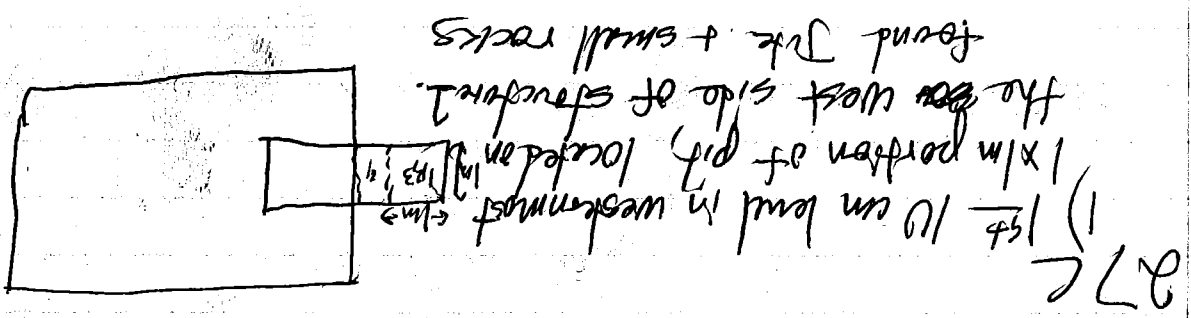 27C
1) 1st 10 cm level in westernmost
1x1m portion of pit, located on
the west side of structure 1.
found Tile + small rocks
←1m→
1m
1,2,3
4